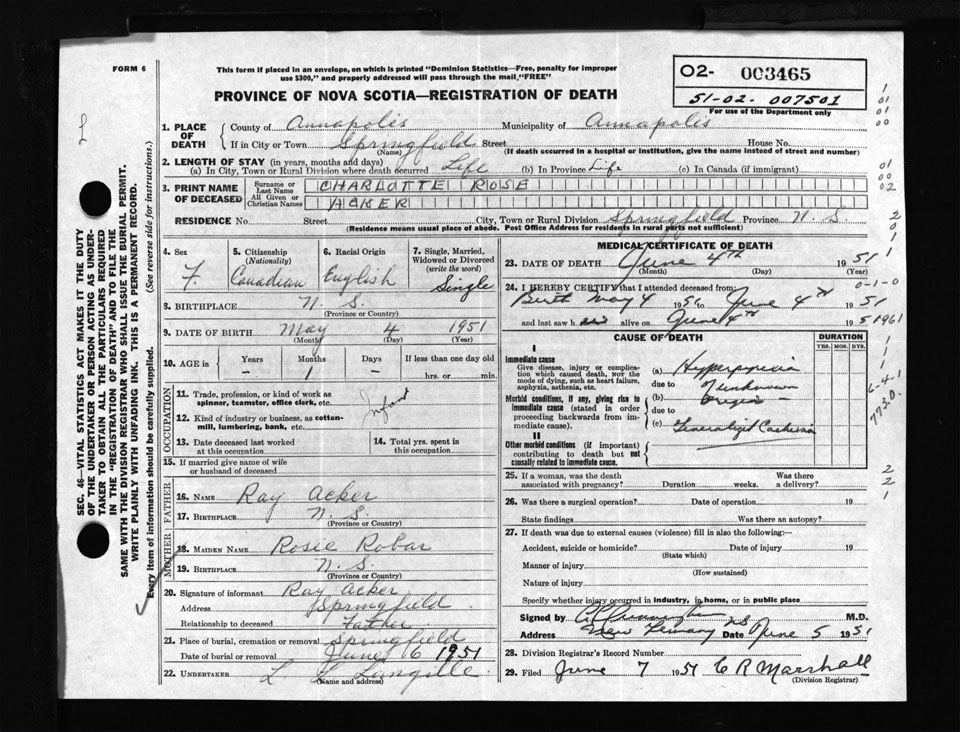 FORM 6
This form if placed in an envelope, on which is printed "Dominion Statistics—Free, penalty for improper
use $300," and properly addressed will pass through the mail, "FREE"
PROVINCE OF NOVA SCOTIA—REGISTRATION OF DEATH
O2- 003465
51-02-007501
For use of the Department only
1. PLACE OF DEATH County of Annapolis Municipality of Annapolis
If in City or Town Springfield Street House No.
(Name) (If death occurred in a hospital or institution, give the name instead of street and number)
2. LENGTH OF STAY (in years, months and days)
(a) In City, Town or Rural Division where death occurred Life (b) In Province Life (c) In Canada (if immigrant)
3. PRINT NAME OF DECEASED Surname or Last Name CHARLOTTE ROSE
All Given or Christian Names ACKER
RESIDENCE No. Street City, Town or Rural Division Springfield Province N. S.
(Residence means usual place of abode. Post Office Address for residents in rural parts not sufficient)
4. Sex 5. Citizenship (Nationality) 6. Racial Origin 7. Single, Married, Widowed or Divorced (write the word)
F. Canadian English Single
8. BIRTHPLACE N. S.
(Province or Country)
9. DATE OF BIRTH May 4 1951
(Month) (Day) (Year)
10. AGE in Years Months Days If less than one day old
— 1 — hrs. or min.
OCCUPATION
11. Trade, profession, or kind of work as
spinner, teamster, office clerk, etc. Infant
12. Kind of industry or business, as cotton-
mill, lumbering, bank, etc.
13. Date deceased last worked
at this occupation
14. Total yrs. spent in
this occupation
15. If married give name of wife
or husband of deceased
FATHER
16. NAME Ray Acker
17. BIRTHPLACE N. S.
(Province or Country)
MOTHER
18. MAIDEN NAME Rosie Robar
19. BIRTHPLACE N. S.
(Province or Country)
20. Signature of informant Ray Acker
Address Springfield
Relationship to deceased Father
21. Place of burial, cremation or removal Springfield
Date of burial or removal June 6 1951
22. UNDERTAKER L. Langille
(Name and address)
MEDICAL CERTIFICATE OF DEATH
23. DATE OF DEATH June 4th 1951
(Month) (Day) (Year)
24. I HEREBY CERTIFY that I attended deceased from:
Birth May 4 1951 to June 4th 1951
and last saw her alive on June 4th 1951
CAUSE OF DEATH DURATION
YRS. MOS. DYS.
I
Immediate cause
Give disease, injury or complication which caused death, NOT the mode of dying, such as heart failure, asphyxia, asthenia, etc.
(a) Hyperpyrexia
due to Unknown
Morbid conditions, if any, giving rise to immediate cause (stated in order proceeding backwards from immediate cause).
(b) origin
due to
(c) Generalized
II
Other morbid conditions (if important) contributing to death but not causally related to immediate cause.
25. If a woman, was the death
associated with pregnancy? Duration weeks. Was there
a delivery?
26. Was there a surgical operation? Date of operation 19
State findings Was there an autopsy?
27. If death was due to external causes (violence) fill in also the following:—
Accident, suicide or homicide? Date of injury 19
(State which)
Manner of injury
(How sustained)
Nature of injury
Specify whether injury occurred in industry, in home, or in public place
Signed by M.D.
Address New Germany NS Date June 5 1951
28. Division Registrar's Record Number
29. Filed June 7 1951 C R Marshall
(Division Registrar)
SEC. 46—VITAL STATISTICS ACT MAKES IT THE DUTY
OF THE UNDERTAKER OR PERSON ACTING AS UNDER-
TAKER TO OBTAIN ALL THE PARTICULARS REQUIRED
IN THE "REGISTRATION OF DEATH" AND TO FILE THE
SAME WITH THE DIVISION REGISTRAR WHO SHALL ISSUE THE BURIAL PERMIT.
WRITE PLAINLY WITH UNFADING INK. THIS IS A PERMANENT RECORD.
Every item of information should be carefully supplied. (See reverse side for instructions.)
0-1-0
1961
6-4-1
773.0